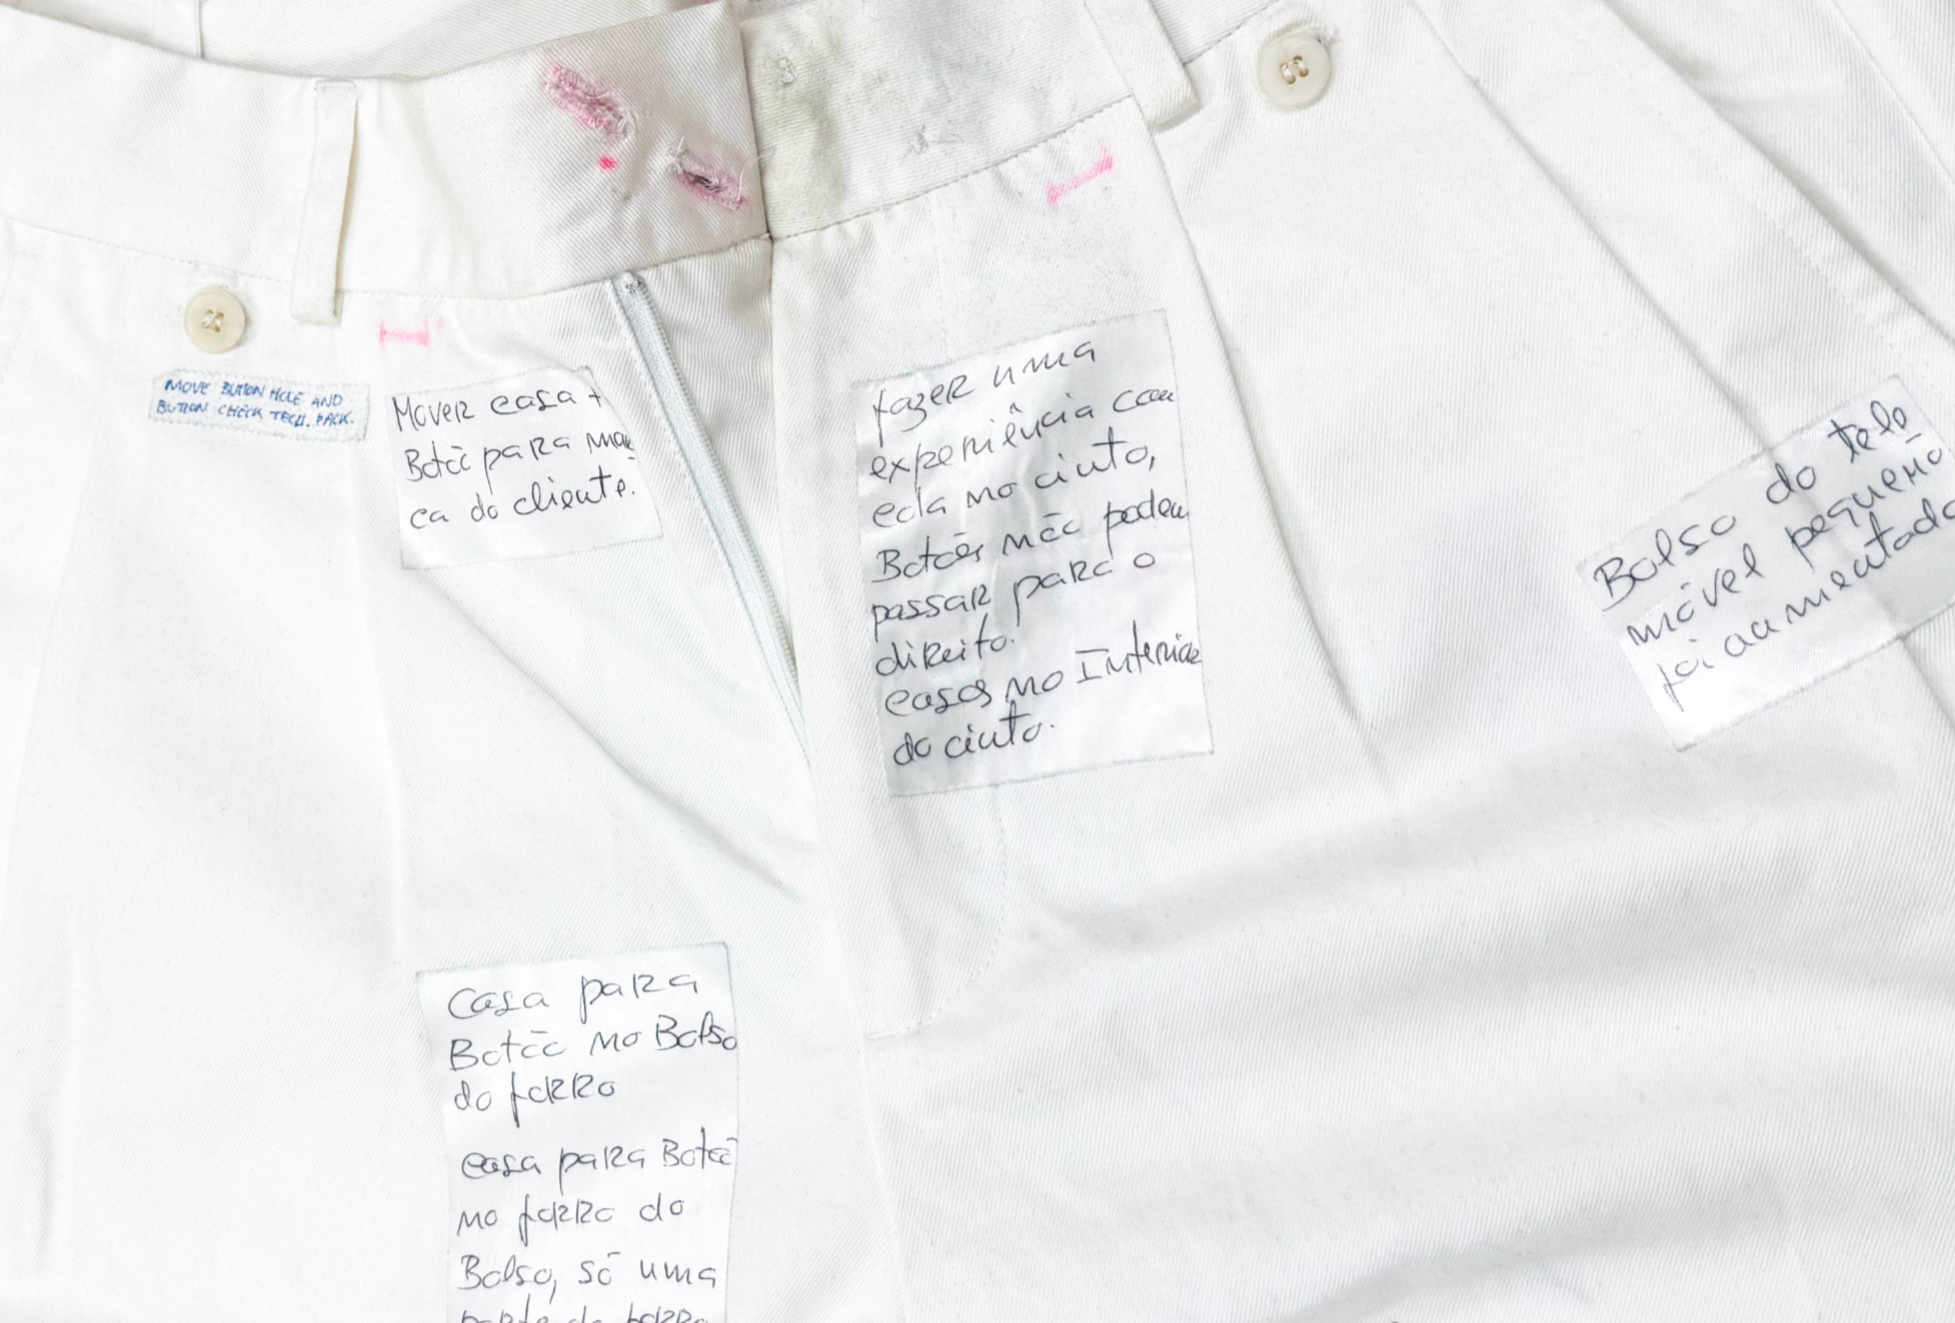 MOVE BUTTON HOLE AND
BUTTON CHECK TECH. PACK.
Mover casa +
Botão para mar
ca do cliente.
fazer uma
experiência com
cola no cinto,
Botões não podem
passar para o
direito.
casas no Interior
do cinto.
Bolso do tele
móvel pequeno
foi aumentado
Casa para
Botão no Bolso
do forro
casa para Botão
no forro do
Bolso, só uma
parte do forro